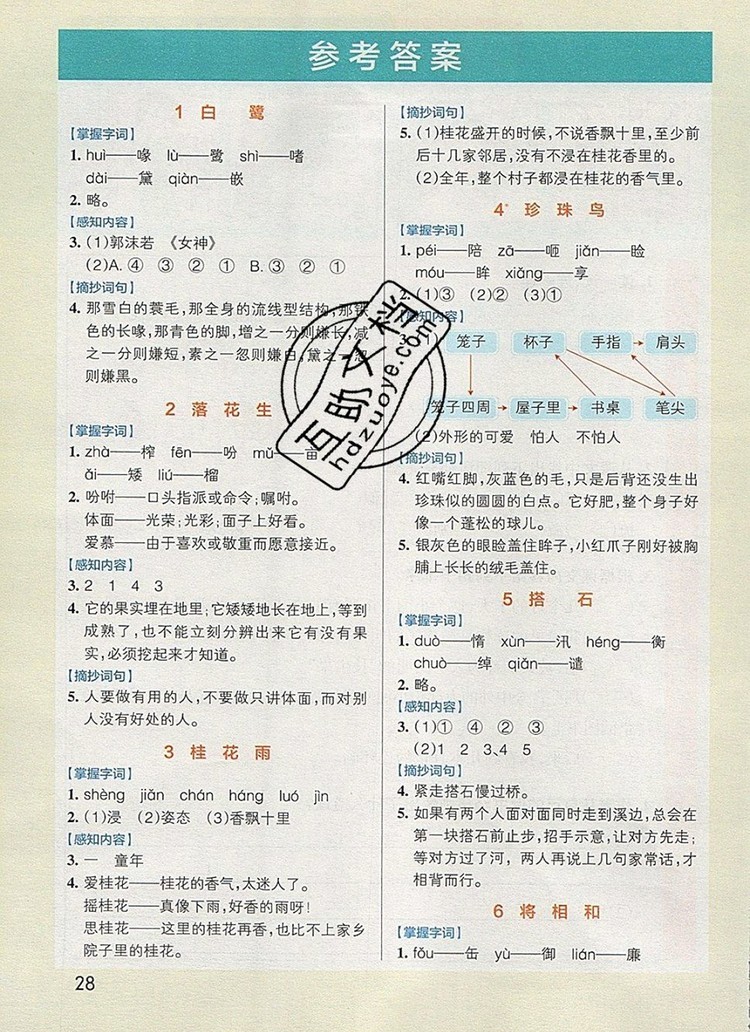 参考答案
1 白 鹭
【掌握字词】
1. huì——喙 lù——鹭 shì——嗜
dài——黛 qiàn——嵌
2. 略。
【感知内容】
3. (1)郭沫若 《女神》
(2)A. ④ ③ ② ① B. ③ ② ①
【摘抄词句】
4. 那雪白的蓑毛,那全身的流线型结构,那铁
色的长喙,那青色的脚,增之一分则嫌长,减
之一分则嫌短,素之一忽则嫌白,黛之一忽
则嫌黑。
2 落 花 生
【掌握字词】
1. zhà——榨 fēn——吩 mǔ——亩
ǎi——矮 liú——榴
2. 吩咐——口头指派或命令;嘱咐。
体面——光荣;光彩;面子上好看。
爱慕——由于喜欢或敬重而愿意接近。
【感知内容】
3. 2 1 4 3
4. 它的果实埋在地里;它矮矮地长在地上,等到
成熟了,也不能立刻分辨出来它有没有果
实,必须挖起来才知道。
【摘抄词句】
5. 人要做有用的人,不要做只讲体面,而对别
人没有好处的人。
3 桂 花 雨
【掌握字词】
1. shèng jiǎn chán háng luó jìn
2. (1)浸 (2)姿态 (3)香飘十里
【感知内容】
3. 一 童年
4. 爱桂花——桂花的香气,太迷人了。
摇桂花——真像下雨,好香的雨呀!
思桂花——这里的桂花再香,也比不上家乡
院子里的桂花。
28
【摘抄词句】
5. (1)桂花盛开的时候,不说香飘十里,至少前
后十几家邻居,没有不浸在桂花香里的。
(2)全年,整个村子都浸在桂花的香气里。
4* 珍 珠 鸟
【掌握字词】
1. péi——陪 zā——咂 jiǎn——睑
móu——眸 xiǎng——享
2. (1)③ (2)② (3)①
【感知内容】
3. (1) 笼子 杯子 手指 肩头
笼子四周 屋子里 书桌 笔尖
(2)外形的可爱 怕人 不怕人
【摘抄词句】
4. 红嘴红脚,灰蓝色的毛,只是后背还没生出
珍珠似的圆圆的白点。它好肥,整个身子好
像一个蓬松的球儿。
5. 银灰色的眼睑盖住眸子,小红爪子刚好被胸
脯上长长的绒毛盖住。
5 搭 石
【掌握字词】
1. duò——惰 xùn——汛 héng——衡
chuò——绰 qiǎn——谴
2. 略。
【感知内容】
3. (1)① ④ ② ③
(2)1 2 3、4 5
【摘抄词句】
4. 紧走搭石慢过桥。
5. 如果有两个人面对面同时走到溪边,总会在
第一块搭石前止步,招手示意,让对方先走;
等对方过了河, 两人再说上几句家常话,才
相背而行。
6 将 相 和
【掌握字词】
1. fǒu——缶 yù——御 lián——廉
互助文档
hdzuoye.com